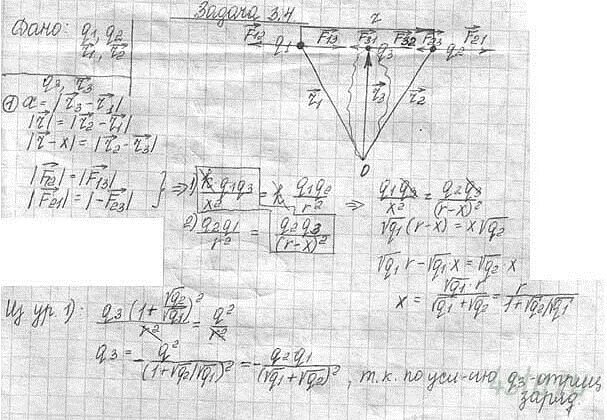 Задача 3.4
Дано: q1, q2
r⃗1, r⃗2
q3, r⃗3
F⃗12 F⃗13 F⃗31 F⃗32 F⃗23 F⃗21
r
q1 q3 q2
r⃗1 r⃗3 r⃗2
0
① x = |r⃗3 - r⃗1|
|r⃗| = |r⃗2 - r⃗1|
|r⃗ - x| = |r⃗2 - r⃗3|
|F⃗12| = |F⃗13|
|F⃗21| = |-F⃗23| } ⇒ 1) k q1q3/x² = k q1q2/r² ⇒ q1q3/x² = q2q3/(r-x)²
2) q2q1/r² = q2q3/(r-x)²
√q1 (r-x) = x√q2
√q1 r - √q1 x = √q2 x
x = √q1 · r/(√q1 + √q2) = r/(1+√q2/√q1)
Из ур 1): q3 (1 + √q2/√q1)²/r² = q2/r²
q3 = - q2/(1+√q2/√q1)² = - q2q1/(√q1+√q2)², т.к. по усл-ию q3 - отриц
заряд